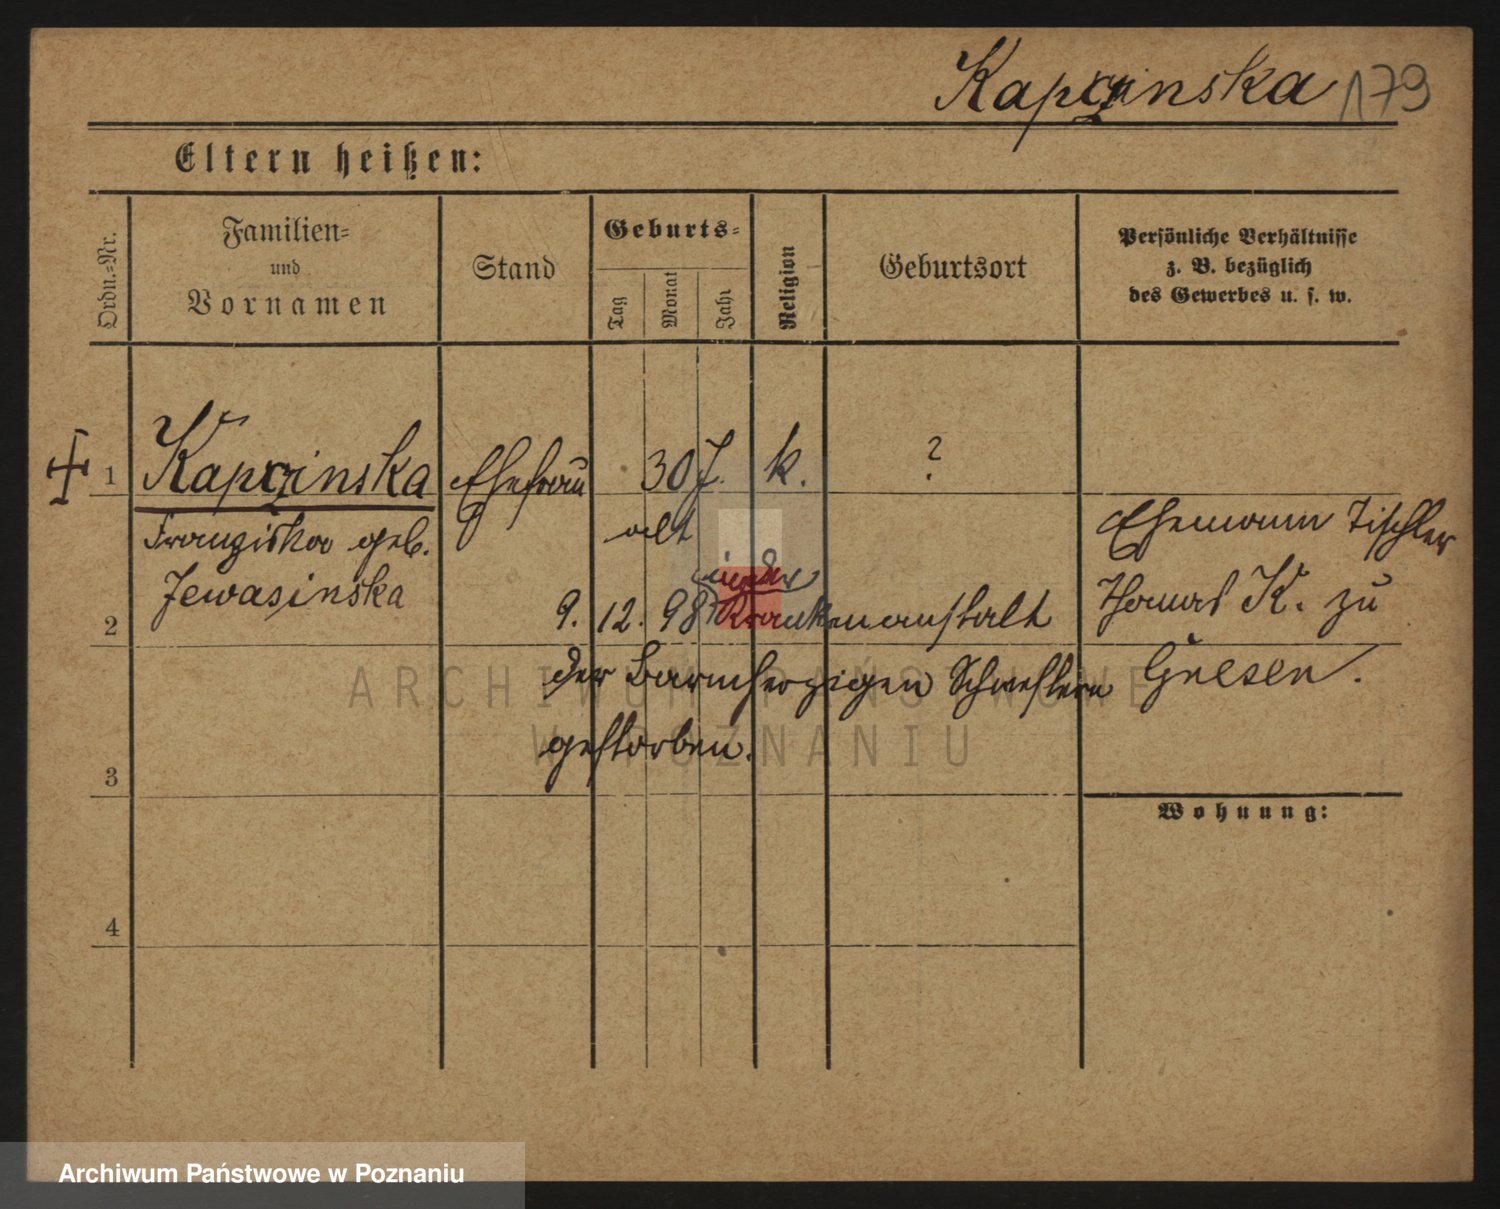 Kapczinska 179
Eltern heißen:
Ordn.-Nr.
Familien-
und
Vornamen
Stand
Geburts-
Tag
Monat
Jahr
Religion
Geburtsort
Persönliche Verhältnisse
z. B. bezüglich
des Gewerbes u. s. w.
1 Kapczinska Ehefrau 30 J. k. ?
Franziska geb. alt
Ehemann Tischler
Jewasinska
in der
2 9. 12. 98 Krankenanstalt
Thomas K. zu
der barmherzigen Schwestern
Gnesen.
gestorben.
3
Wohnung:
4
ARCHIWUM PAŃSTWOWE
W POZNANIU
Archiwum Państwowe w Poznaniu